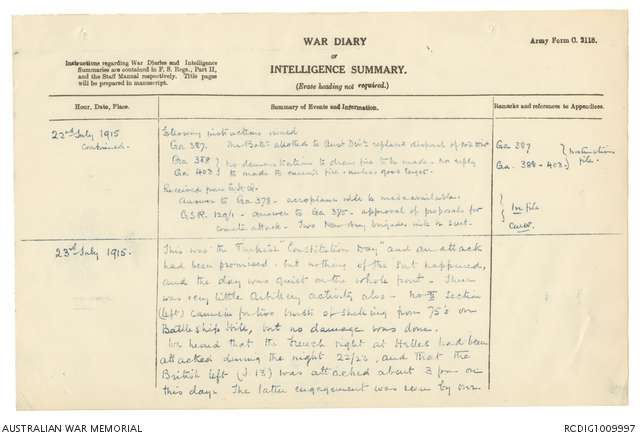 WAR DIARY
OR
INTELLIGENCE SUMMARY.
(Erase heading not required.)
Army Form C. 2118.
Instructions regarding War Diaries and Intelligence
Summaries are contained in F. S. Regs., Part II,
and the Staff Manual respectively. Title pages
will be prepared in manuscript.
Hour, Date, Place.
Summary of Events and Information.
Remarks and references to Appendices.
22nd July 1915
Continued.
Following instructions issued
Ga 387. allotted to Aust Div: replaced disposal of
Ga 388 } no demonstrations to draw fire to be made - no reply
Ga 403 } to made to enemy's fire - unless good target.
Received from G.H.Q.
Answer to Ga 378 - aeroplane will be made available.
G.S.R. answer to Ga 385 - approval of proposals for
counter attack - Two New Army brigades will be sent.
Ga 387
Ga - 388 - 403
} Instructions
file.
} In file
Cover.
23rd July 1915.
This was the Turkish "Constitution Day" and an attack
had been promised - but nothing of the sort happened,
and the day was quiet on the whole front. There
was very little Artillery activity also - No II Section
(left) came in for two bursts of shelling from 75's on
Battleship Hill, but no damage was done.
We heard that the French right at Helles had been
attacked during the night 22/23, and that the
British left (J 13) was attacked about 3 pm on
this day. The latter engagement was seen by our
AUSTRALIAN WAR MEMORIAL
RCDIG1009997